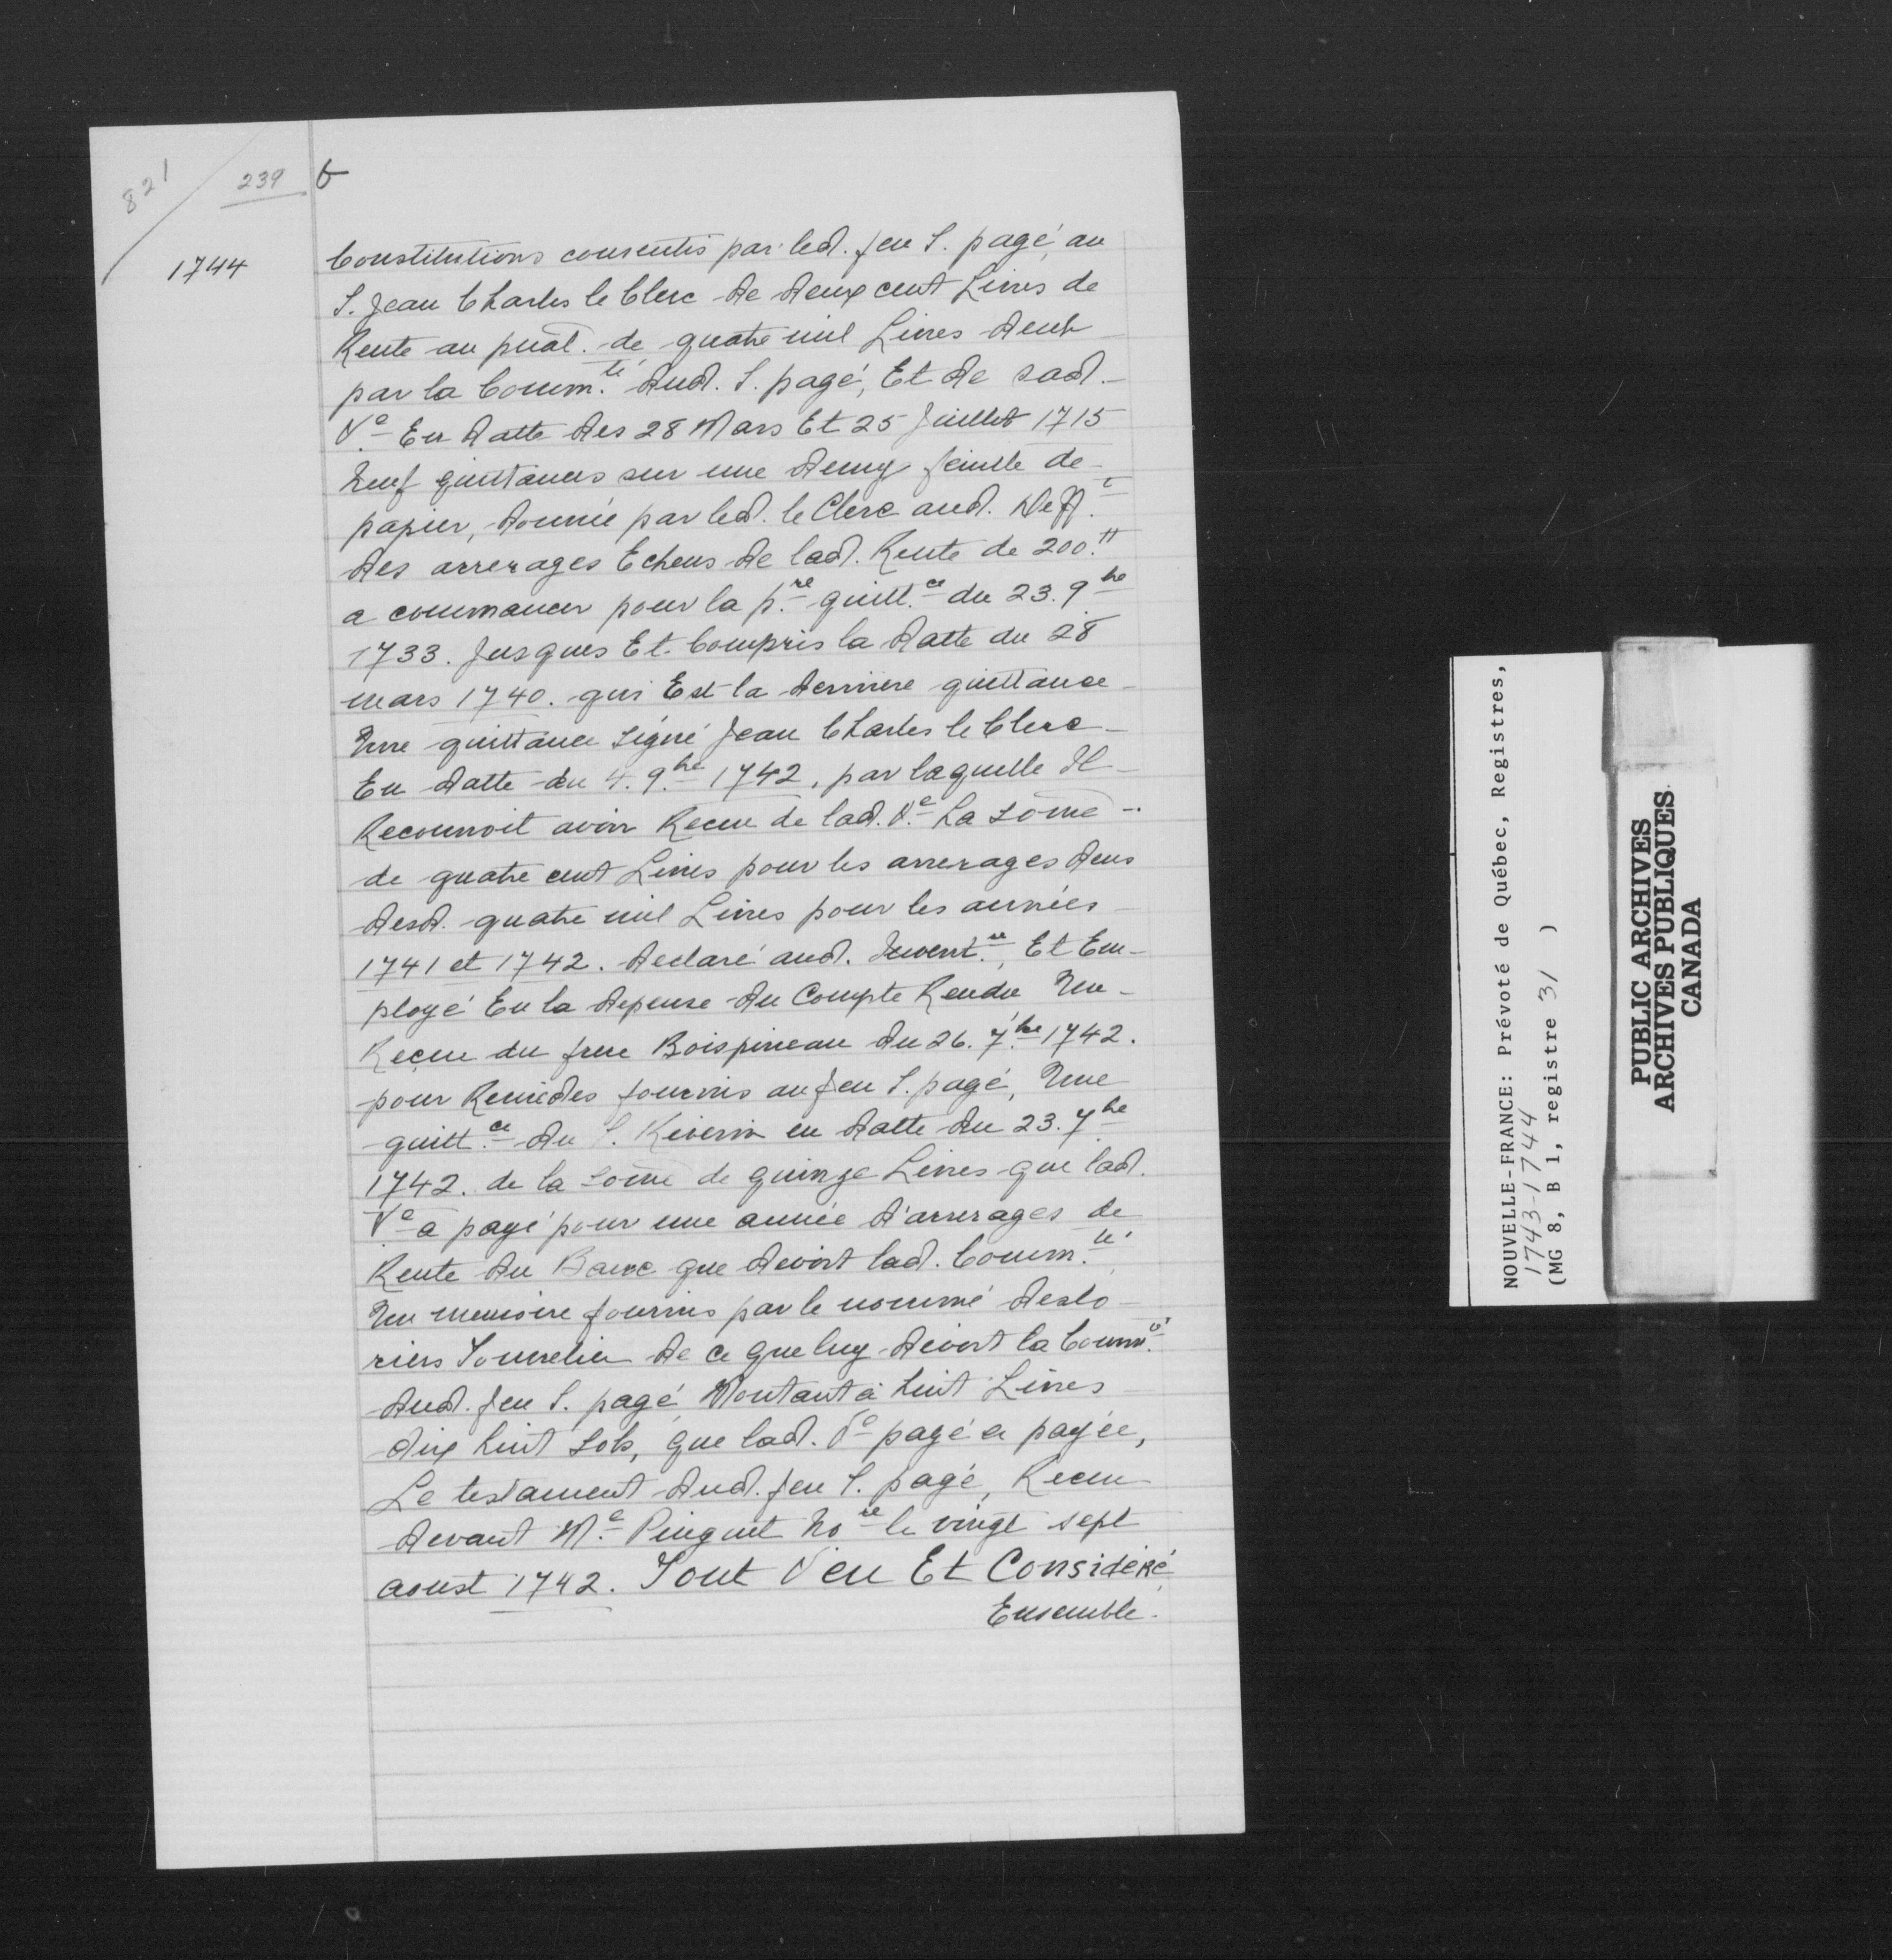 821
239
1744
Constitutions consentis par led. feu S. pagé, au
S. Jean Charles le Clerc de deux cent Livres de
Rente au pñal. de quatre mil Livres deub
par la Comm.té dud. S. pagé, Et de sad.
Ve En datte des 28 Mars Et 25 Juillet 1715
Neuf quittances sur une demy feuille de
papier, donnée par led. le Clerc aud. Deff.t
des arrerages Echeus de lad. Rente de 200.tt
a commancer pour la p.re quitt.ce du 23. 9.bre
1733. Jusques Et Compris la datte du 28
mars 1740. qui Est la dernière quittance
Une quittance signé Jean Charles le Clerc
En datte du 4. 9.bre 1742, par laquelle Il
Reconnoit avoir Receu de lad. V.e La some
de quatre cent Livres pour les arrerages deus
desd. quatre mil Livres pour les années
1741 et 1742. declaré aud. Invent.re, Et Em-
ployé En la depense du Compte Rendu Un
Reçeu du frere Boispineau du 26. 7.bre 1742.
pour Remèdes fournis au feu S. pagé, Une
quitt.ce du S. Riverin en datte du 23. 7bre
1742. de la some de quinze Livres que lad.
Ve a payé pour une année d'arrerages de
Rente du Banc que devoit lad. Comm.té
Un memoire fournis par le nommé deslo-
riers Tonnelier de ce que luy devoit la Comm.té
dud. feu S. pagé Montant à huit Livres
dix huit sols, que lad. Ve pagé a payée,
Le testament dud. feu S. pagé, Receu
devant M.e Pinguet No.re le vingt sept
aoust 1742. Tout Veu Et Considéré
Ensemble.
NOUVELLE-FRANCE: Prévoté de Québec, Registres,
1743-1744
(MG 8, B 1, registre 31 )
PUBLIC ARCHIVES
ARCHIVES PUBLIQUES
CANADA